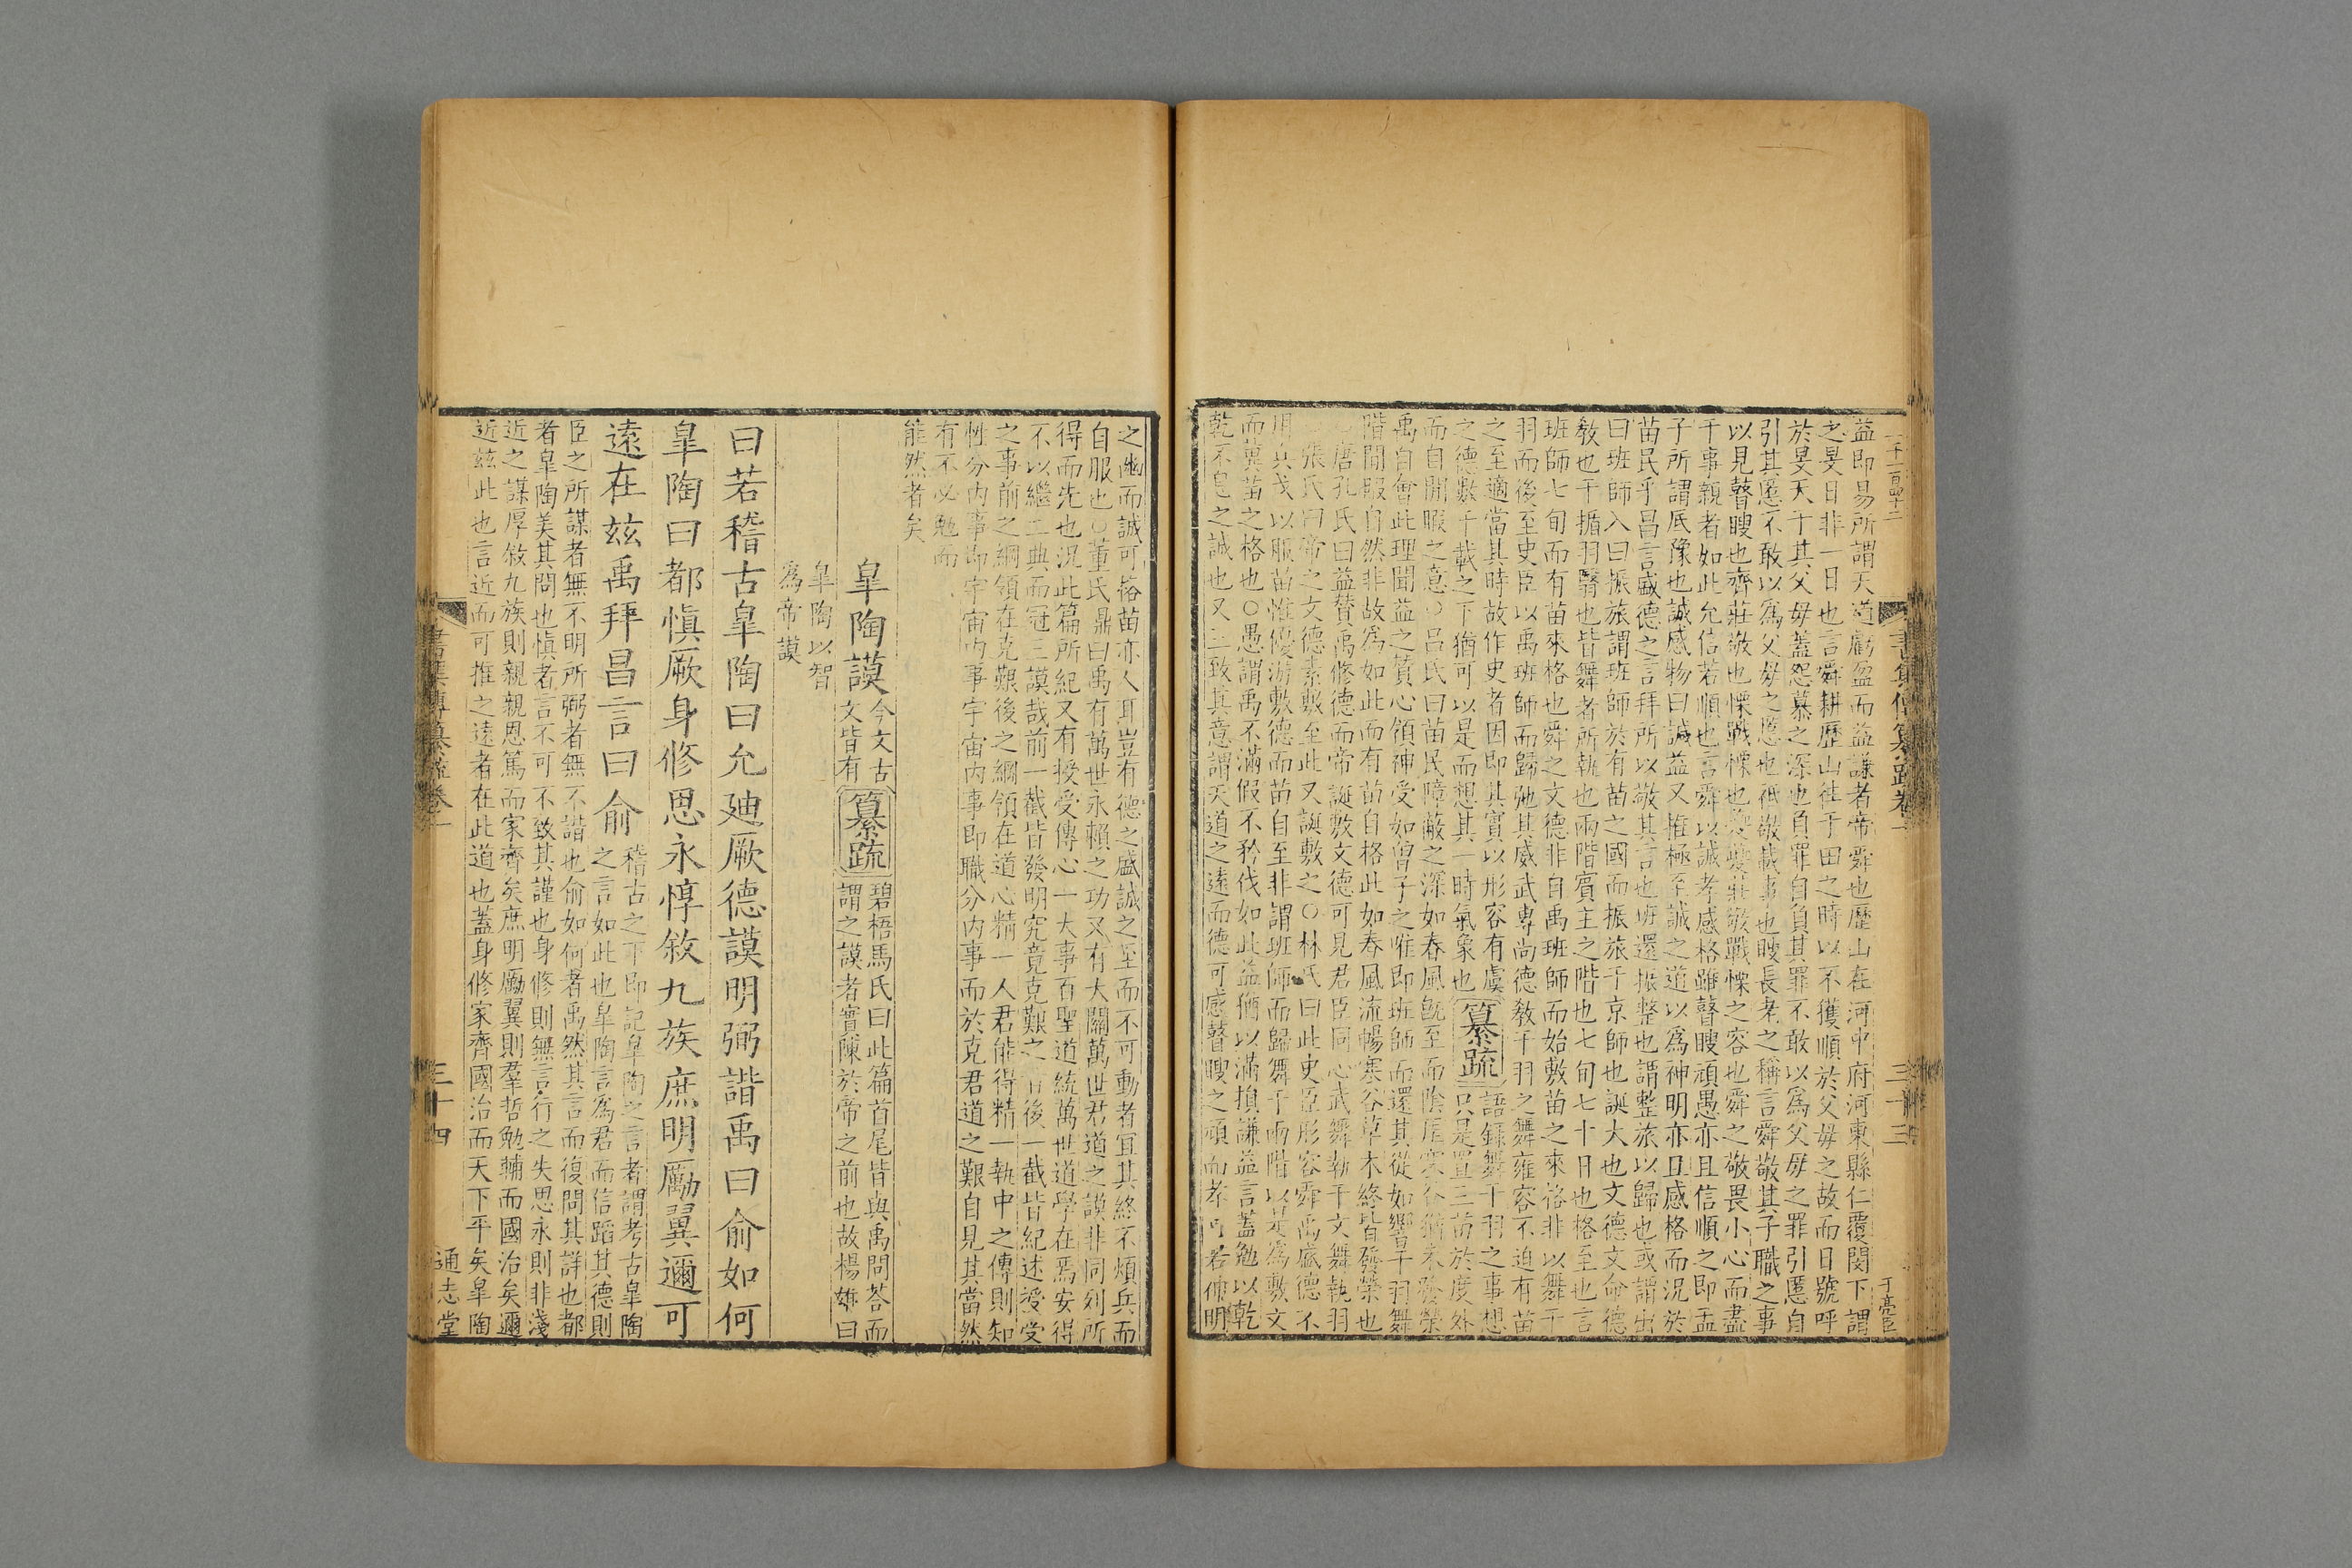 二千一百四十二
書集傳纂疏卷一
三十三
于亮臣
益即易所謂天道虧盈而益謙者帝舜也歷山在河中府河東縣仁覆閔下謂
之旻日非一日也言舜耕歷山往于田之時以不獲順於父母之故而日號呼
於旻天于其父母蓋怨慕之深也負罪自負其罪不敢以為父母之罪引慝自
引其慝不敢以為父母之慝也祗敬載事也瞍長老之稱言舜敬其子職之事
以見瞽瞍也齊莊敬也慄戰慄也夔夔莊敬戰慄之容也舜之敬畏小心而盡
于事親者如此允信若順也言舜以誠孝感格雖瞽瞍頑愚亦且信順之即孟
子所謂厎豫也誠感物曰諴益又推極至誠之道以為神明亦且感格而況於
苗民乎昌言盛德之言拜所以敬其言也班還振整也謂整旅以歸也或謂出
曰班師入曰振旅謂班師於有苗之國而振旅于京師也誕大也文德文命德
教也干楯羽翳也皆舞者所執也兩階賓主之階也七旬七十日也格至也言
班師七旬而有苗來格也舜之文德非自禹班師而始敷苗之來格非以舞干
羽而後至史臣以禹班師而歸弛其威武專尚德教干羽之舞雍容不迫有苗
之至適當其時故作史者因即其實以形容有虞
之德數千載之下猶可以是而想其一時氣象也纂疏語録舞干羽之事想
只是置三苗於度外
而自閒暇之意○呂氏曰苗民障蔽之深如春風旣至而陰厓寒谷猶未發榮
禹自會此理聞益之贊心領神受如曾子之唯即班師而還其從如響干羽舞
階閒暇自然非故為如此而有苗自格此如春風流暢寒谷草木終皆發榮也
○唐孔氏曰益贊禹修德而帝誕敷文德可見君臣同心武舞執干文舞執羽
○張氏曰帝之文德素敷至此又誕敷之○林氏曰此史臣形容舜禹盛德不
用兵戈以服苗惟優游敷德而苗自至非謂班師而歸舞干兩階以是為敷文
而冀苗之格也○愚謂禹不滿假不矜伐如此益猶以滿損謙益言蓋勉以乾
乾不息之誠也又三致其意謂天道之遠而德可感瞽瞍之頑而孝可若神明
之幽而誠可格苗亦人耳豈有德之盛誠之至而不可動者宜其終不煩兵而
自服也○董氏鼎曰禹有萬世永賴之功又有大關萬世君道之謨非同列所
得而先也況此篇所紀又有授受傳心一大事百聖道統萬世道學在焉安得
不以繼二典而冠三謨哉前一截皆發明究竟克艱之旨後一截皆紀述授受
之事前之綱領在克艱後之綱領在道心精一人君能得精一執中之傳則知
性分内事即宇宙内事宇宙内事即職分内事而於克君道之艱自見其當然
有不必勉而
能然者矣
皐陶謨今文古
文皆有纂疏碧梧馬氏曰此篇首尾皆與禹問答而
謂之謨者實陳於帝之前也故楊雄曰
皐陶以智
為帝謨
曰若稽古皐陶曰允迪厥德謨明弼諧禹曰俞如何
皐陶曰都慎厥身修思永惇敘九族庶明勵翼邇可
遠在玆禹拜昌言曰俞稽古之下即記皐陶之言者謂考古皐陶
之言如此也皐陶言為君而信蹈其德則
臣之所謀者無不明所弼者無不諧也俞如何者禹然其言而復問其詳也都
者皐陶美其問也慎者言不可不致其謹也身修則無言行之失思永則非淺
近之謀厚敘九族則親親恩篤而家齊矣庶明勵翼則羣哲勉輔而國治矣邇
近玆此也言近而可推之遠者在此道也蓋身修家齊國治而天下平矣皐陶
書集傳纂疏卷一
三十四
通志堂